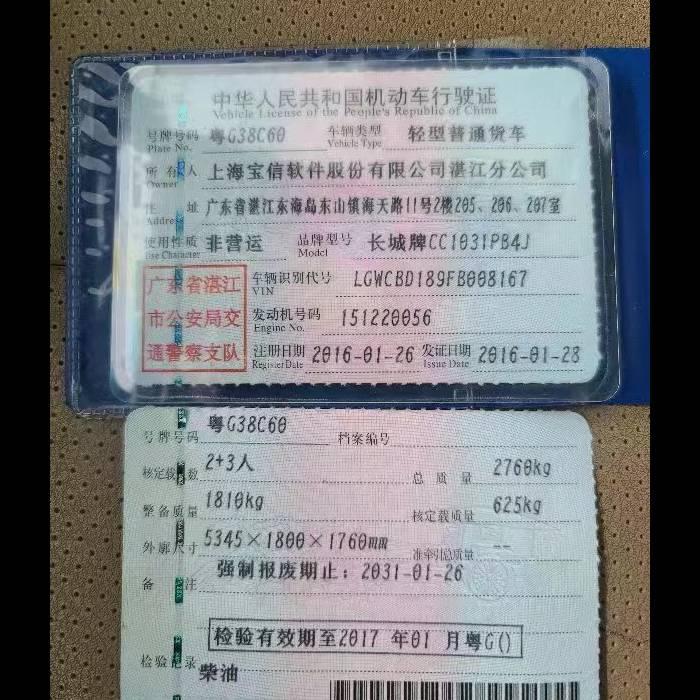 中华人民共和国机动车行驶证
Vehicle License of the People's Republic of China
号牌号码 粤G38C60 车辆类型 轻型普通货车
Plate No. Vehicle Type
所有人 上海宝信软件股份有限公司湛江分公司
Owner
住址 广东省湛江东海岛东山镇海天路11号2楼205、206、207室
Address
使用性质 非营运 品牌型号 长城牌CC1031PB4J
Use Character Model
广东省湛江
市公安局交
通警察支队
车辆识别代号 LGWCBD189FB008167
VIN
发动机号码 151220056
Engine No.
注册日期 2016-01-26 发证日期 2016-01-28
Register Date Issue Date
号牌号码 粤G38C60 档案编号
核定载人数 2+3人 总质量 2760kg
整备质量 1810kg 核定载质量 625kg
外廓尺寸 5345×1800×1760mm 准牵引总质量 --
备注 强制报废期止：2031-01-26
检验有效期至2017 年01 月粤G()
检验记录 柴油